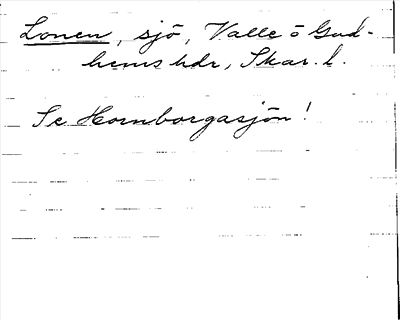 Lonen, sjö, Valle o Gud-
hems hdr, Skar. l.
Se Hornborgasjön!